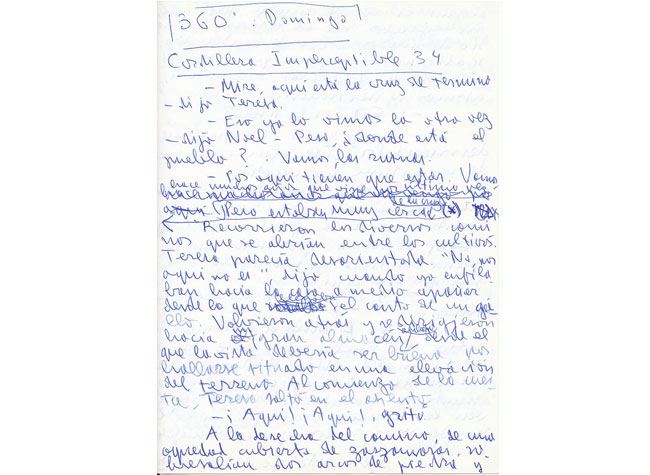 360'. Domingo
Cordillera Imperceptible 34
- Mire, aquí está la cruz de término
- dijo Teresa.
- Eso ya lo vimos la otra vez
- dijo Noel - Pero, ¿donde está el
pueblo? Vamos, las ruinas.
- Por aquí tienen que estar. Vamos
hace muchos años que vine por última vez
aquí (Pero estaban muy cerca de la cruz) (*)
Recorrieron los diversos cami
nos que se abrían entre los cultivos.
Teresa parecía desorientada. "No, por
aquí no es", dijo, cuando ya enfila
ban hacia la casa a medio
desde la que el canto de un ga
llo. Volvieron atrás y se dirigieron
hacia gran almacén, desde el
que la vista debería ser buena por
hallarse situado en una elevación
del terreno. Al comienzo de la cues
ta, Teresa saltó en el asiento.
- ¡Aquí! ¡Aquí!, gritó
A la derecha del camino, de una
oquedad cubierta de zarzamoras, so
bresalían dos arcos de piedra y